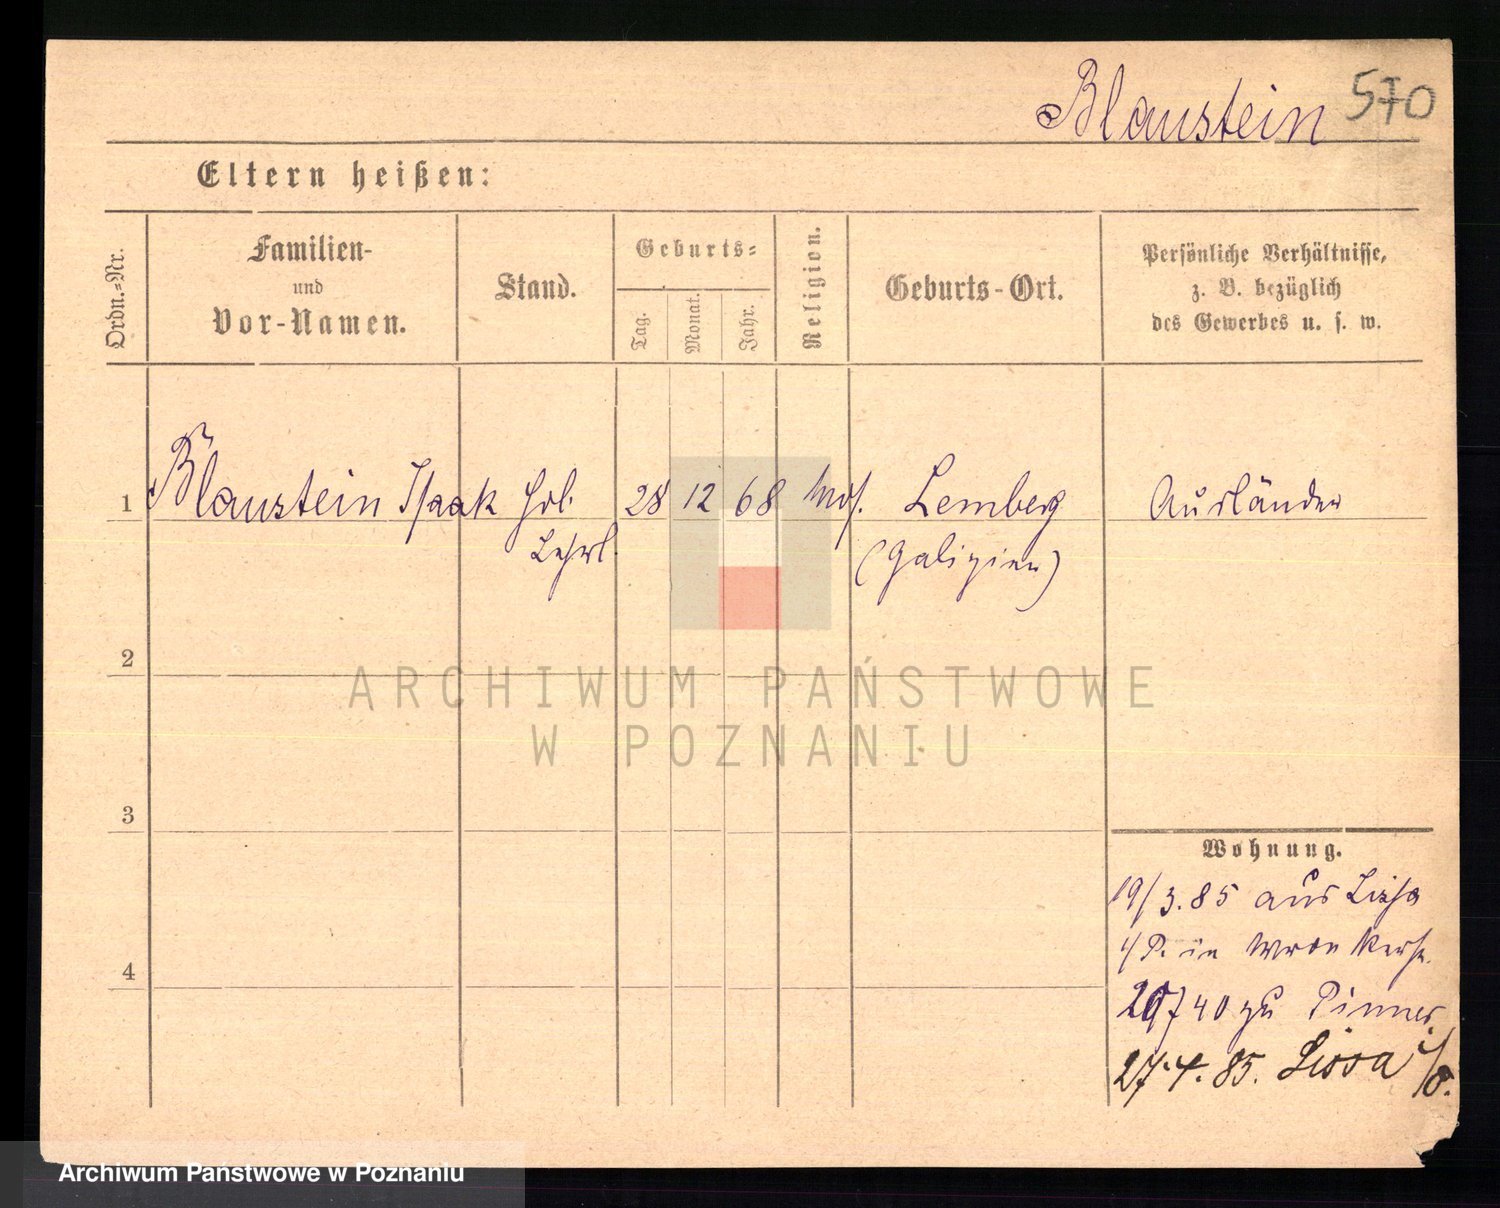 Blaustein 570
Eltern heißen:
Ordn.-Nr.
Familien-
und
Vor-Namen.
Stand.
Geburts-
Tag.
Monat.
Jahr.
Religion.
Geburts-Ort.
Persönliche Verhältnisse,
z. B. bezüglich
des Gewerbes u. s. w.
1 Blaustein Isaak Hdl. 28 12 68 mos. Lemberg Ausländer
Lehrl. (Galizien)
2
ARCHIWUM PAŃSTWOWE
W POZNANIU
3
4
Wohnung.
19/3.85 aus Lissa
i/P. in Wronkerstr.
zu Pinner
27.4.85. Lissa
Archiwum Państwowe w Poznaniu